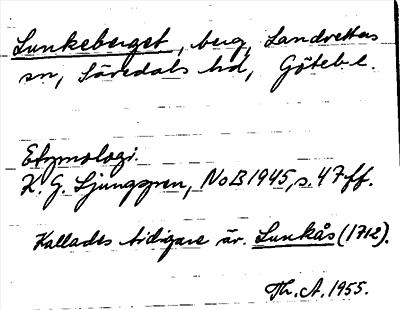 Lunkeberget, berg, Landvetters
sn, Sävedals hd, Göteb. l.
Etymologi.
K. G. Ljunggren, NoB 1945, s. 47 ff.
Kallades tidigare är. Lunkås (1712).
Th. A. 1955.